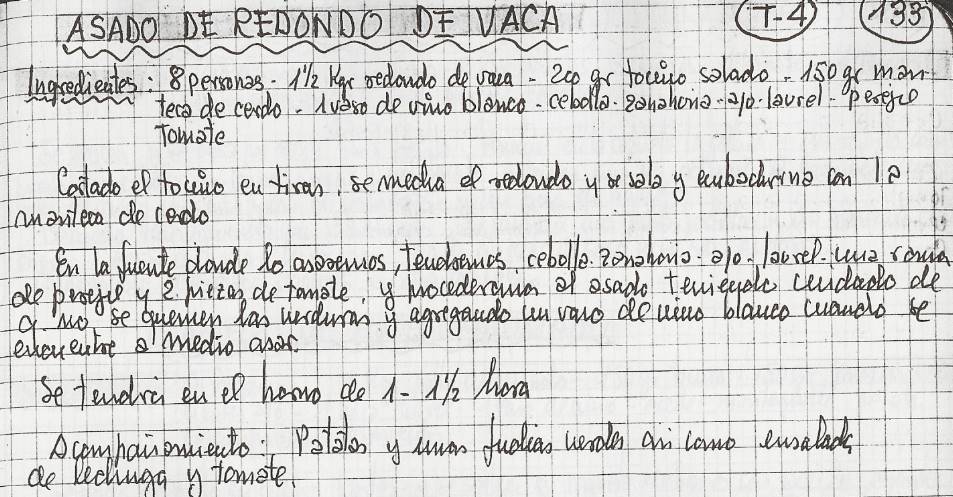 ASADO DE REDONDO DE VACA (T-4) (133)
Ingredientes: 8 personas - 1½ Kgr redondo de vaca - 200 gr tocino salado - 150 gr man-
teca de cerdo - 1 vaso de vino blanco - cebolla - zanahoria - ajo - laurel - perejil
Tomate
Cortado el tocino en tiras, se mecha el redondo y se sala y embadurna con la
manteca de cerdo
En la fuente donde lo asaremos, tendremos, cebolla - zanahoria - ajo - laurel - una rama
de perejil y 2 piezas de tomate, y procederemos al asado teniendo cuidado de
q. no se quemen las verduras y agregando un vaso de vino blanco cuando se
encuentre a medio asar.
Se tendrá en el horno de 1 - 1½ hora
Acompañamiento: Patatas y unas judias verdes asi como ensalada
de lechuga y tomate.